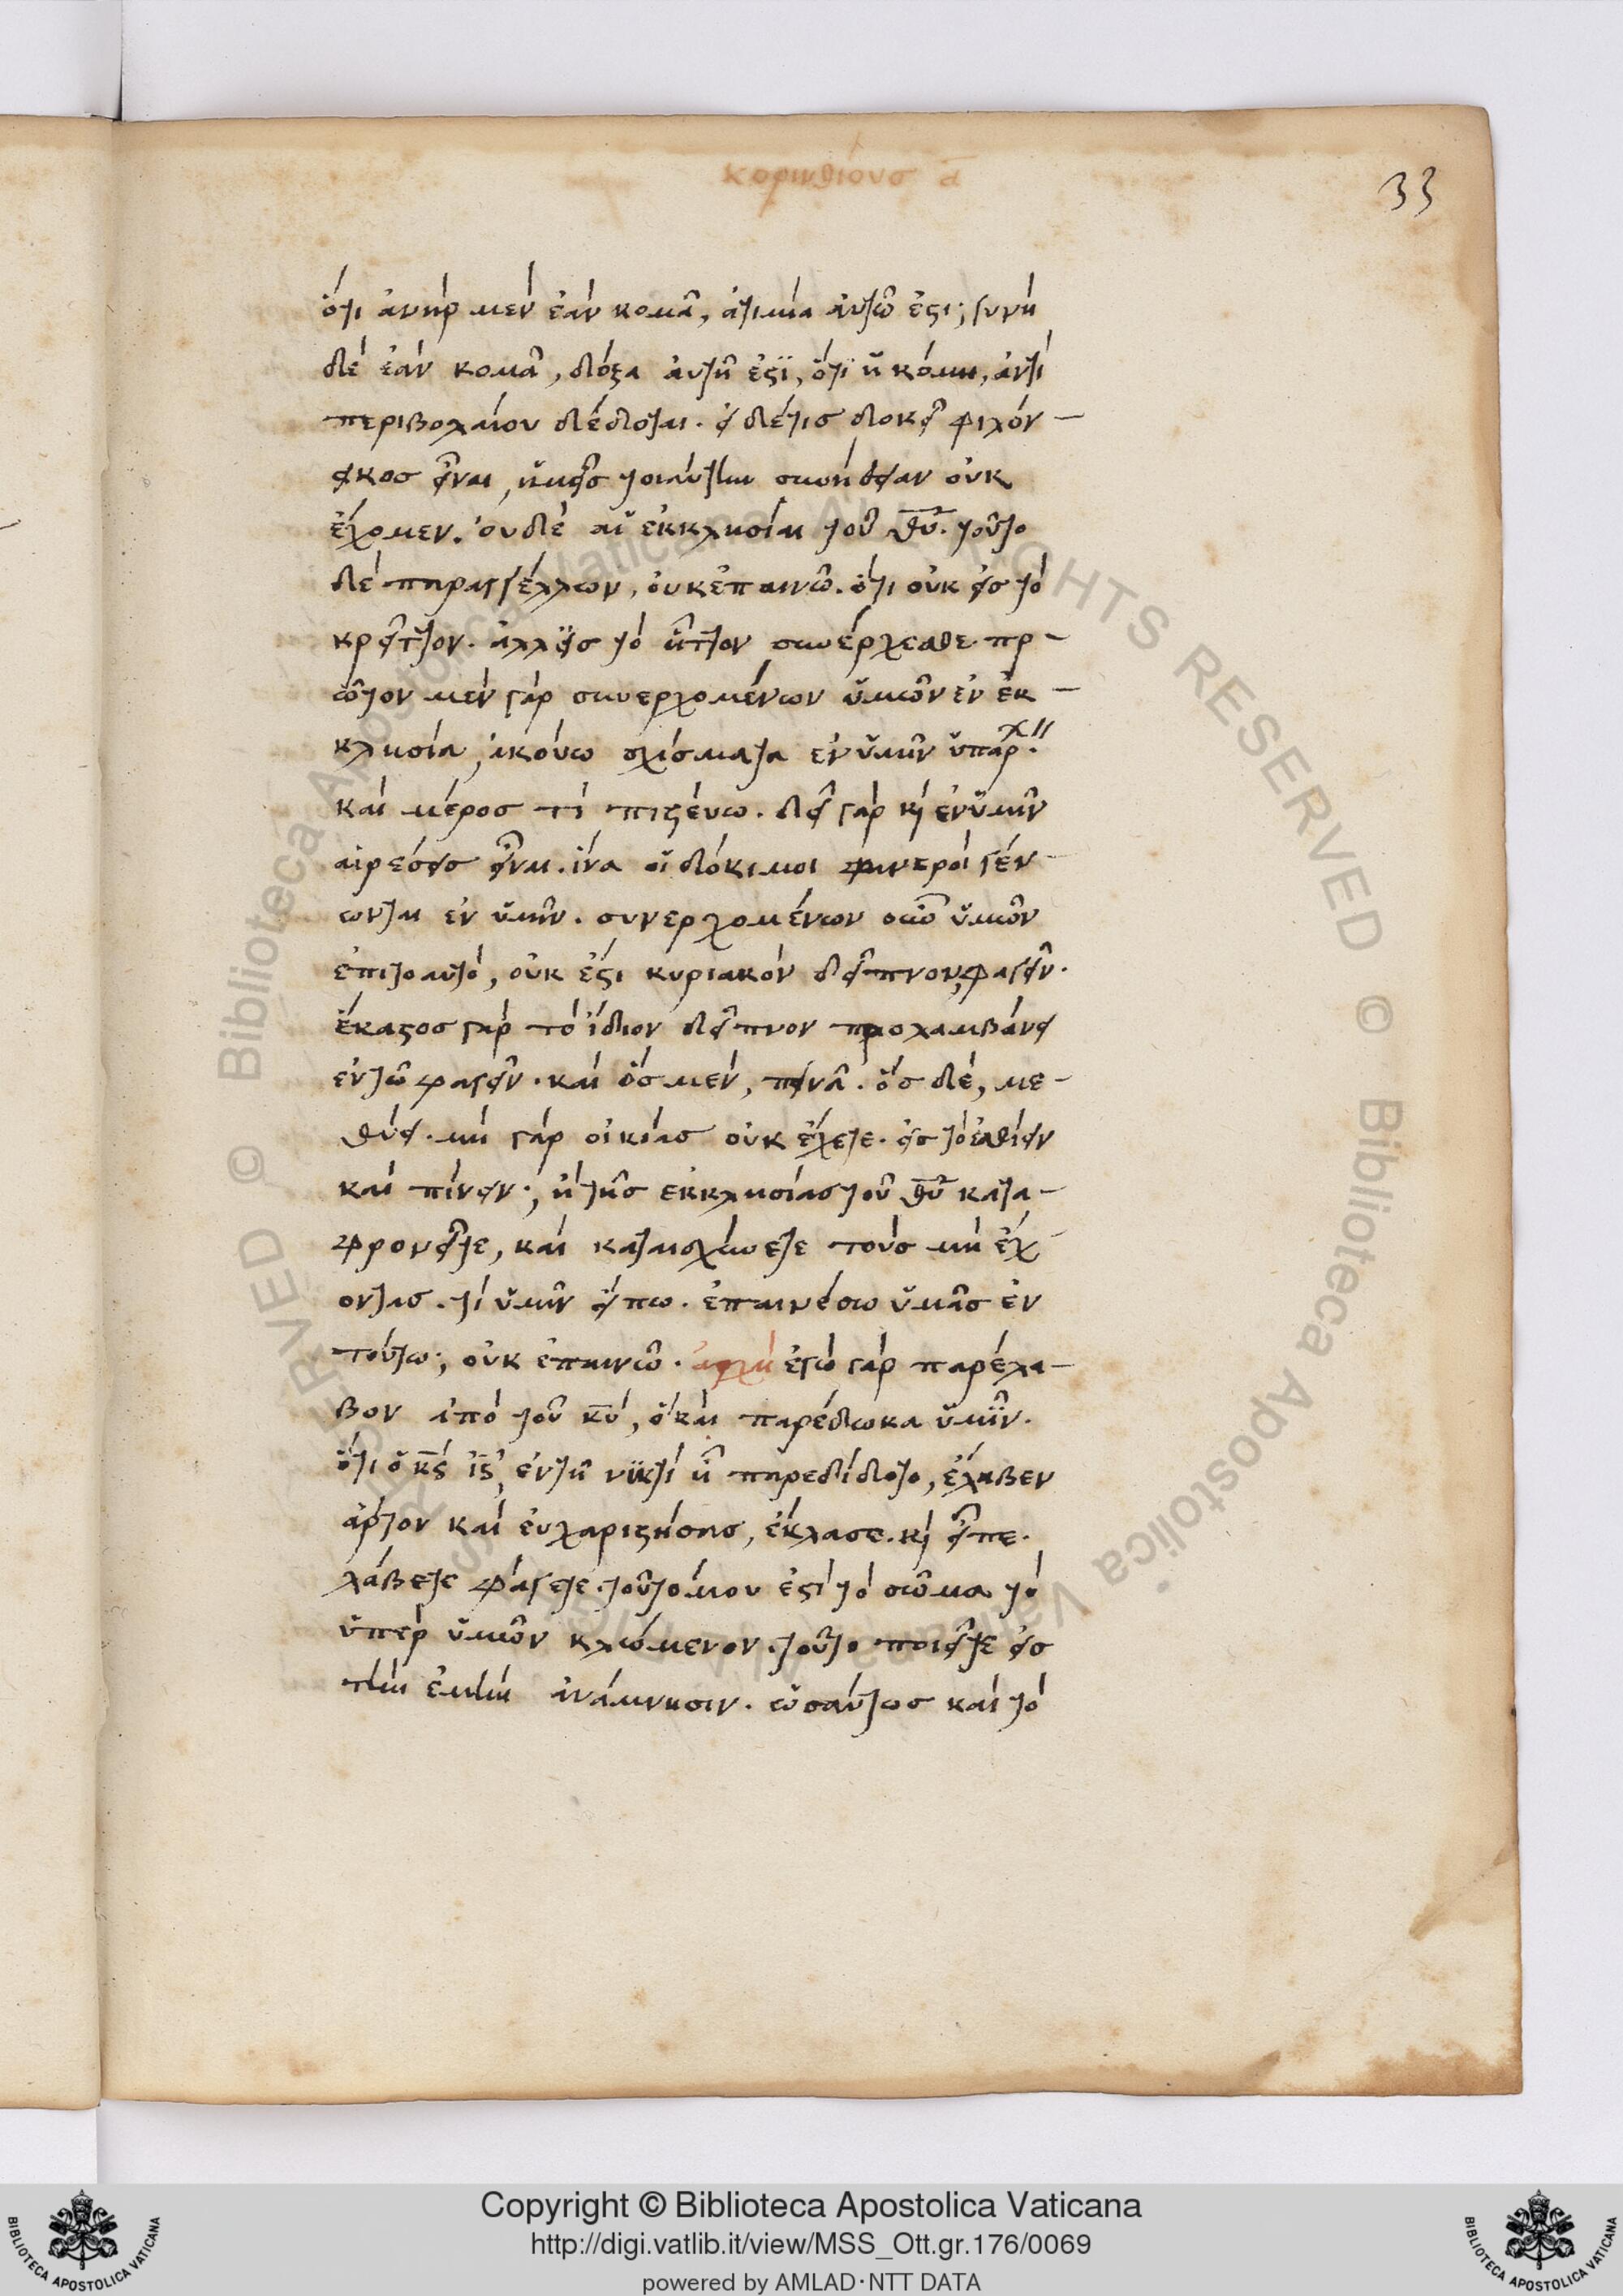 κορινθίους α
33
ὅτι ἀνὴρ μὲν ἐὰν κομᾶ, ἀτιμία αὐτῶ ἐστι; γυνὴ
δὲ ἐὰν κομᾶ, δόξα ἀυτῆ ἐστϊ, ὅτι ἡ κόμη, ἀντὶ
περιβολαίου δέδοται. εἰ δέ τισ δοκεῖ φιλόν-
εικοσ εἶναι, ἡμεῖσ τοιαύτην συνήθειαν οὐκ
ἔχομεν. ὀυδὲ αἱ ἐκκλησίαι τοῦ θυ. τοῦτο
δὲ παραγγέλλων, ὀυκ ἐπαινῶ. ὅτι οὐκ εἰσ τὸ
κρεῖττον. ἀλλ εἰσ τὸ ἧττον συνέρχεσθε. πρ-
ῶτον μὲν γὰρ συνερχομένων ὑμῶν ἐν ἐκ-
κλησία, ἀκούω σχίσματα ἐν ὑμῖν ὑπάρχ.
καὶ μέροσ τὶ πιστεύω. δεῖ γὰρ κὶ ἐν ὑμῖν
αἱρέσεισ εἶναι. ἵνα οἱ δόκιμοι φανεροὶ γέν-
ωνται ἐν ὑμῖν. συνερχομένων οὖν ὑμῶν
ἐπιτοαυτὸ, οὐκ ἔστι κυριακὸν δεῖπνον, φαγεῖν.
ἕκαστοσ γὰρ τὸ ἴδιον δεῖπνον προλαμβάνει
ἐν τῶ φαγεῖν. καὶ ὃσ μὲν, πεινᾶ. ὃσ δὲ, με-
θύει. μὴ γὰρ οἰκίασ οὐκ ἔχετε. εἰσ τὸ ἐσθίειν
καὶ πίνειν; ἢ τῆσ ἐκκλησίασ τοῦ θυ κατα-
φρονεῖτε, καὶ καταισχύνετε τοὺσ μὴ ἔχ-
οντασ. τί ὑμῖν εἴπω. ἐπαινέσω ὑμᾶσ ἐν
τούτω; οὐκ ἐπαινῶ. ἀρχὴ ἐγὼ γὰρ παρέλα-
βον ἀπὸ τοῦ κυ, ὃ καὶ παρέδωκα ὑμῖν.
ὅτι ὁ κς ις, ἐν τῆ νυκτὶ ἧ παρεδίδοτο, ἔλαβεν
ἄρτον καὶ ἐυχαριστήσασ, ἔκλασε. κὶ εἶπε.
λάβετε φάγετε. τοῦτο μου ἐστὶ τὸ σῶμα τὸ
ὑπὲρ ὑμῶν κλώμενον. τοῦτο ποιεῖτε εἰσ
τὴν ἐμὴν ἀνάμνησιν. ὡσαύτωσ καὶ τὸ
© Biblioteca Apostolica Vaticana ALL RIGHTS RESERVED © Biblioteca Apostolica Vaticana ALL RIGHTS RESERVED
Copyright © Biblioteca Apostolica Vaticana
http://digi.vatlib.it/view/MSS_Ott.gr.176/0069
powered by AMLAD·NTT DATA
BIBLIOTECA APOSTOLICA VATICANA
BIBLIOTECA APOSTOLICA VATICANA